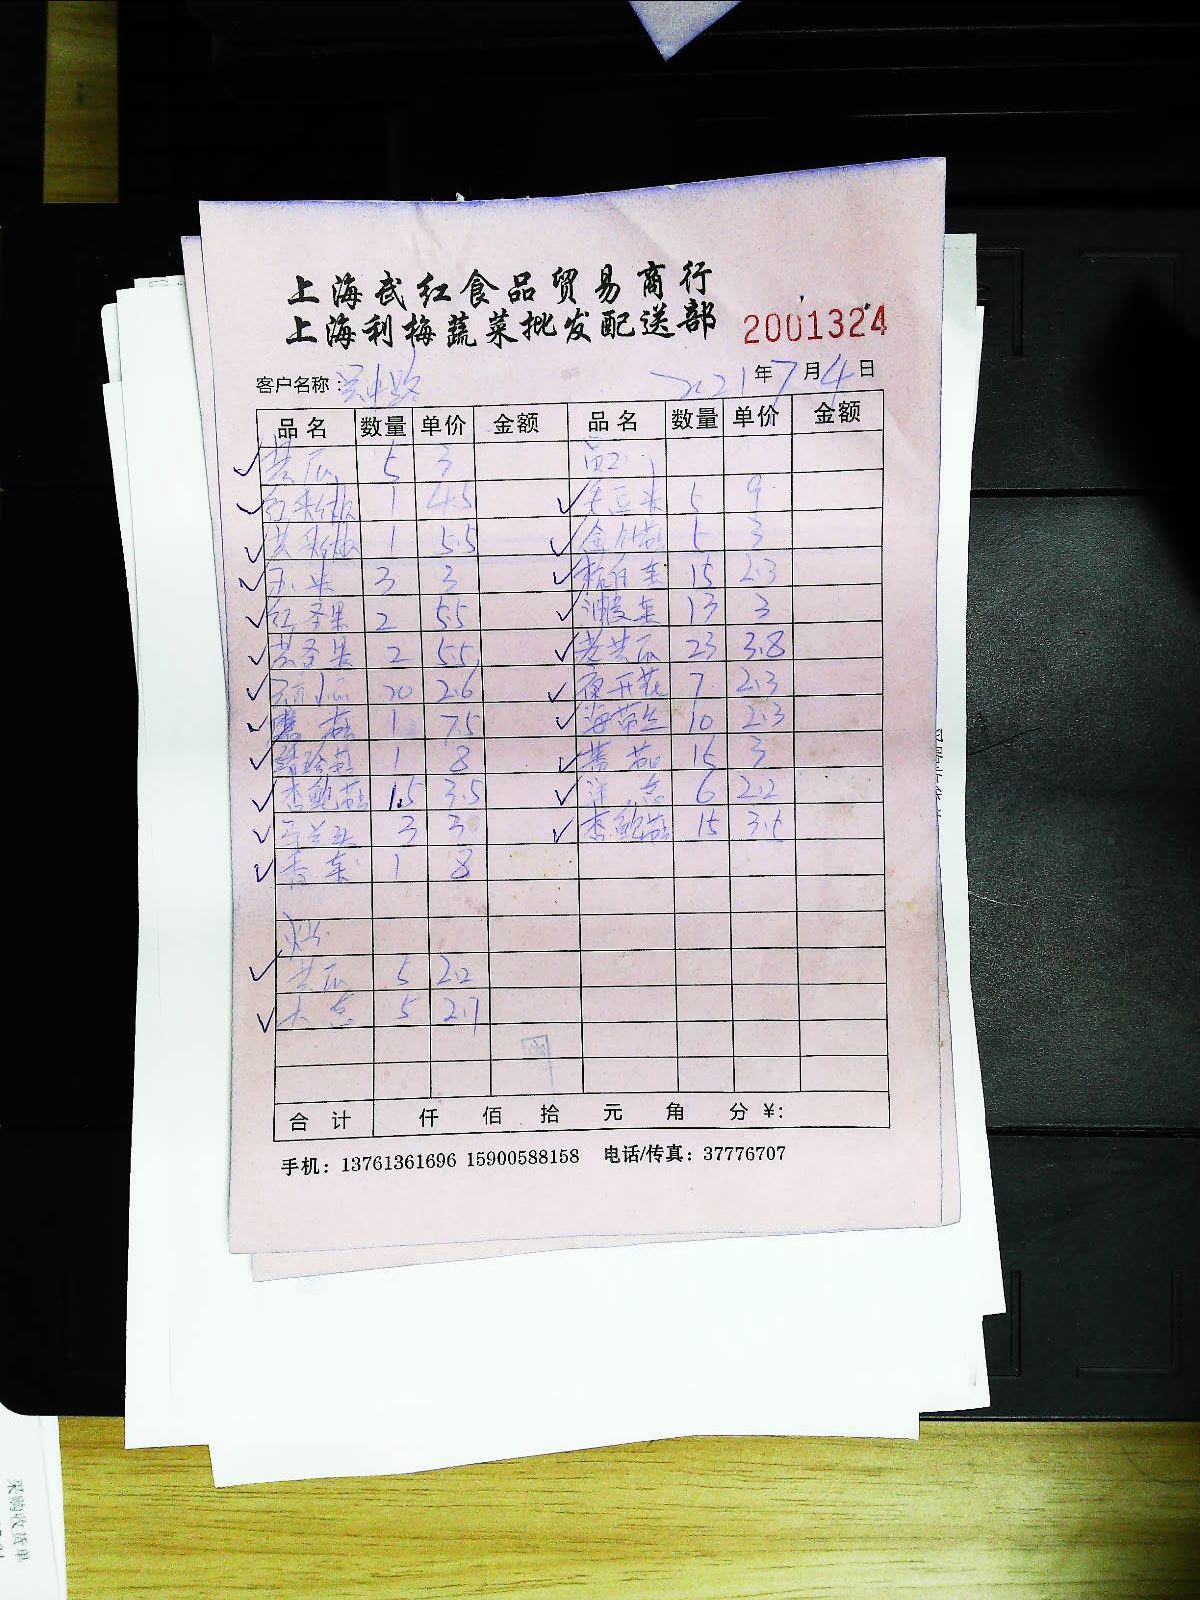 上海武红食品贸易商行
上海利梅蔬菜批发配送部
2001324
客户名称：吴中路 2021年7月4日
品名 数量 单价 金额 品名 数量 单价 金额
黄瓜 5 3
1 4.5 毛豆米 5 9
1 5.5 金针菇 5 3
玉米 3 3 杭白菜 15 2.3
红圣果 2 5.5 油麦菜 13 3
黄圣果 2 5.5 老黄瓜 23 3.8
20 2.6 夜开花 7 2.3
1 7.5 海带丝 10 2.3
1 8 蕃茄 15 3
杏鲍菇 1.5 3.5 洋葱 6 2.2
马兰头 3 3 杏鲍菇 15 3.5
香菜 1 8
黄瓜 5 2.2
大葱 5 2.7
合计 仟 佰 拾 元 角 分 ¥:
手机：13761361696 15900588158 电话/传真：37776707
采购收货单